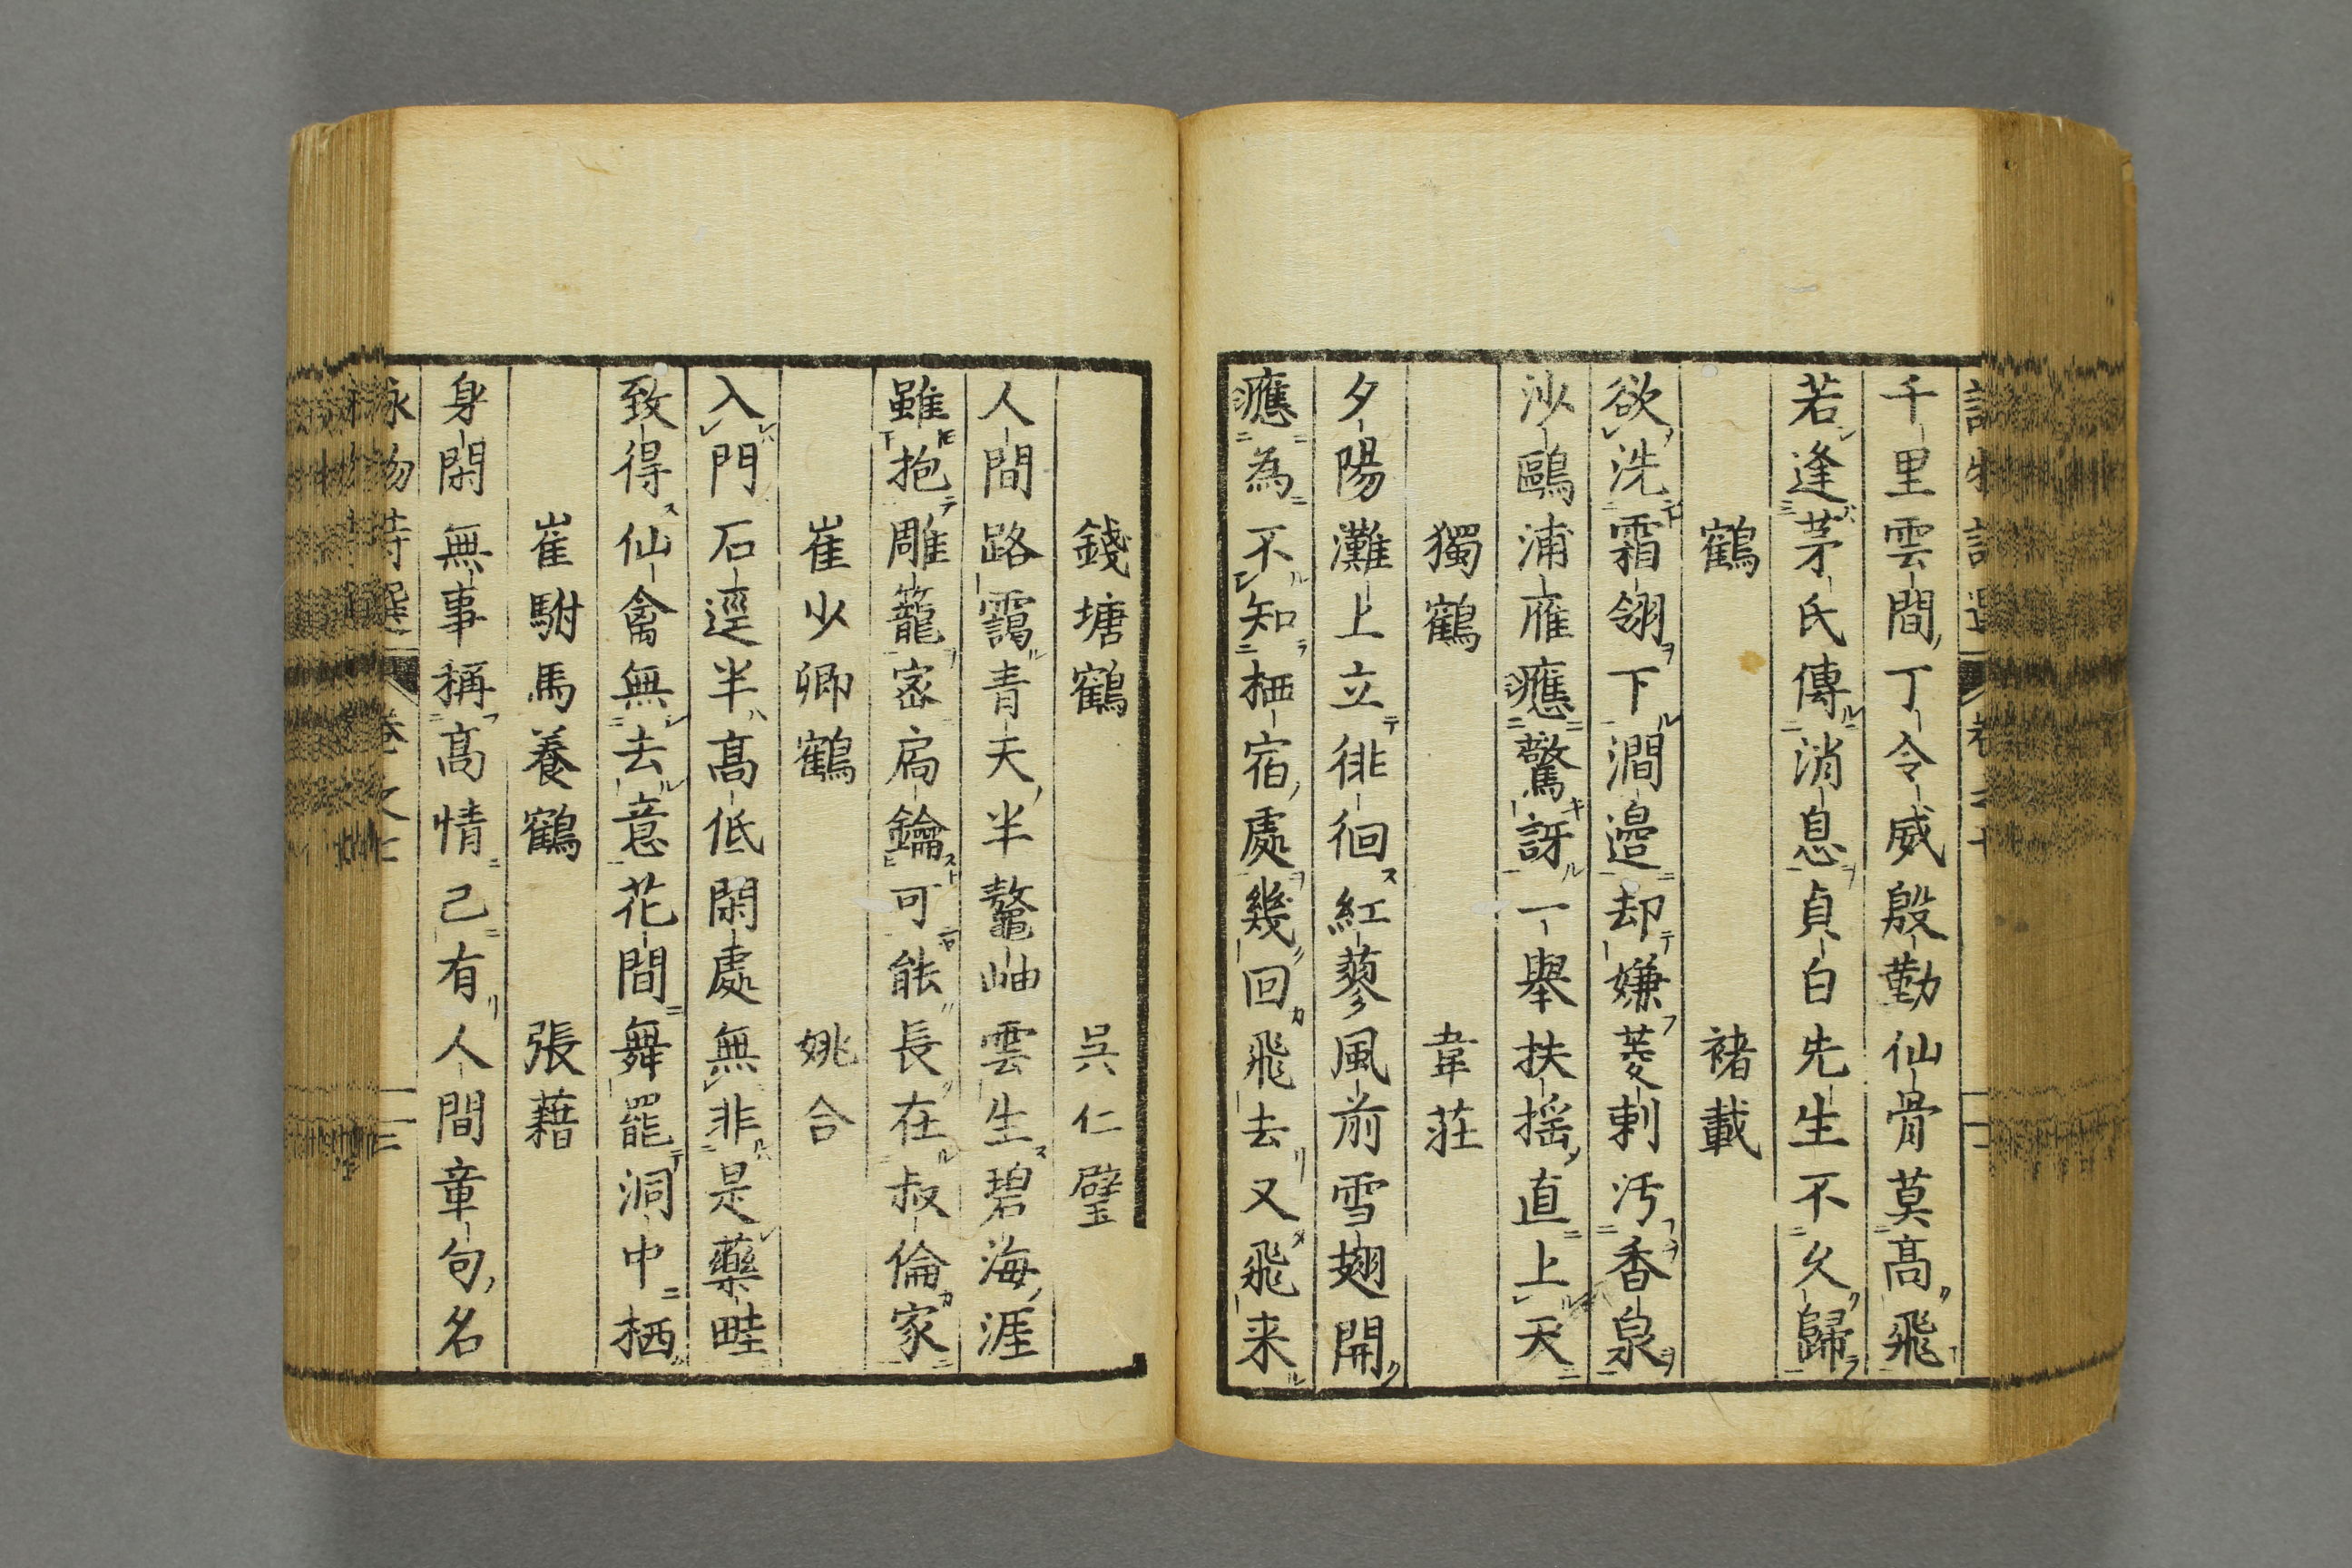 千里雲間丁令威殷勤仙骨莫高飛
若逢茅氏傳消息貞白先生不久歸
鶴　褚載
欲洗霜翎下澗邉却嫌菱刺汚香泉
沙鷗浦雁應驚訝一舉扶揺直上天
獨鶴　韋荘
夕陽灘上立徘徊紅蓼風前雪翅開
應為不知栖宿處幾回飛去又飛来
錢塘鶴　吳仁璧
人間路靄青天半鼇岫雲生碧海涯
雖抱雕籠宻扃鑰可能長在叔倫家
崔少卿鶴　姚合
入門石逕半高低閑處無非是藥畦
致得仙禽無去意花間舞罷洞中栖
崔駙馬養鶴　張藉
身閑無事稱高情己有人間章句名